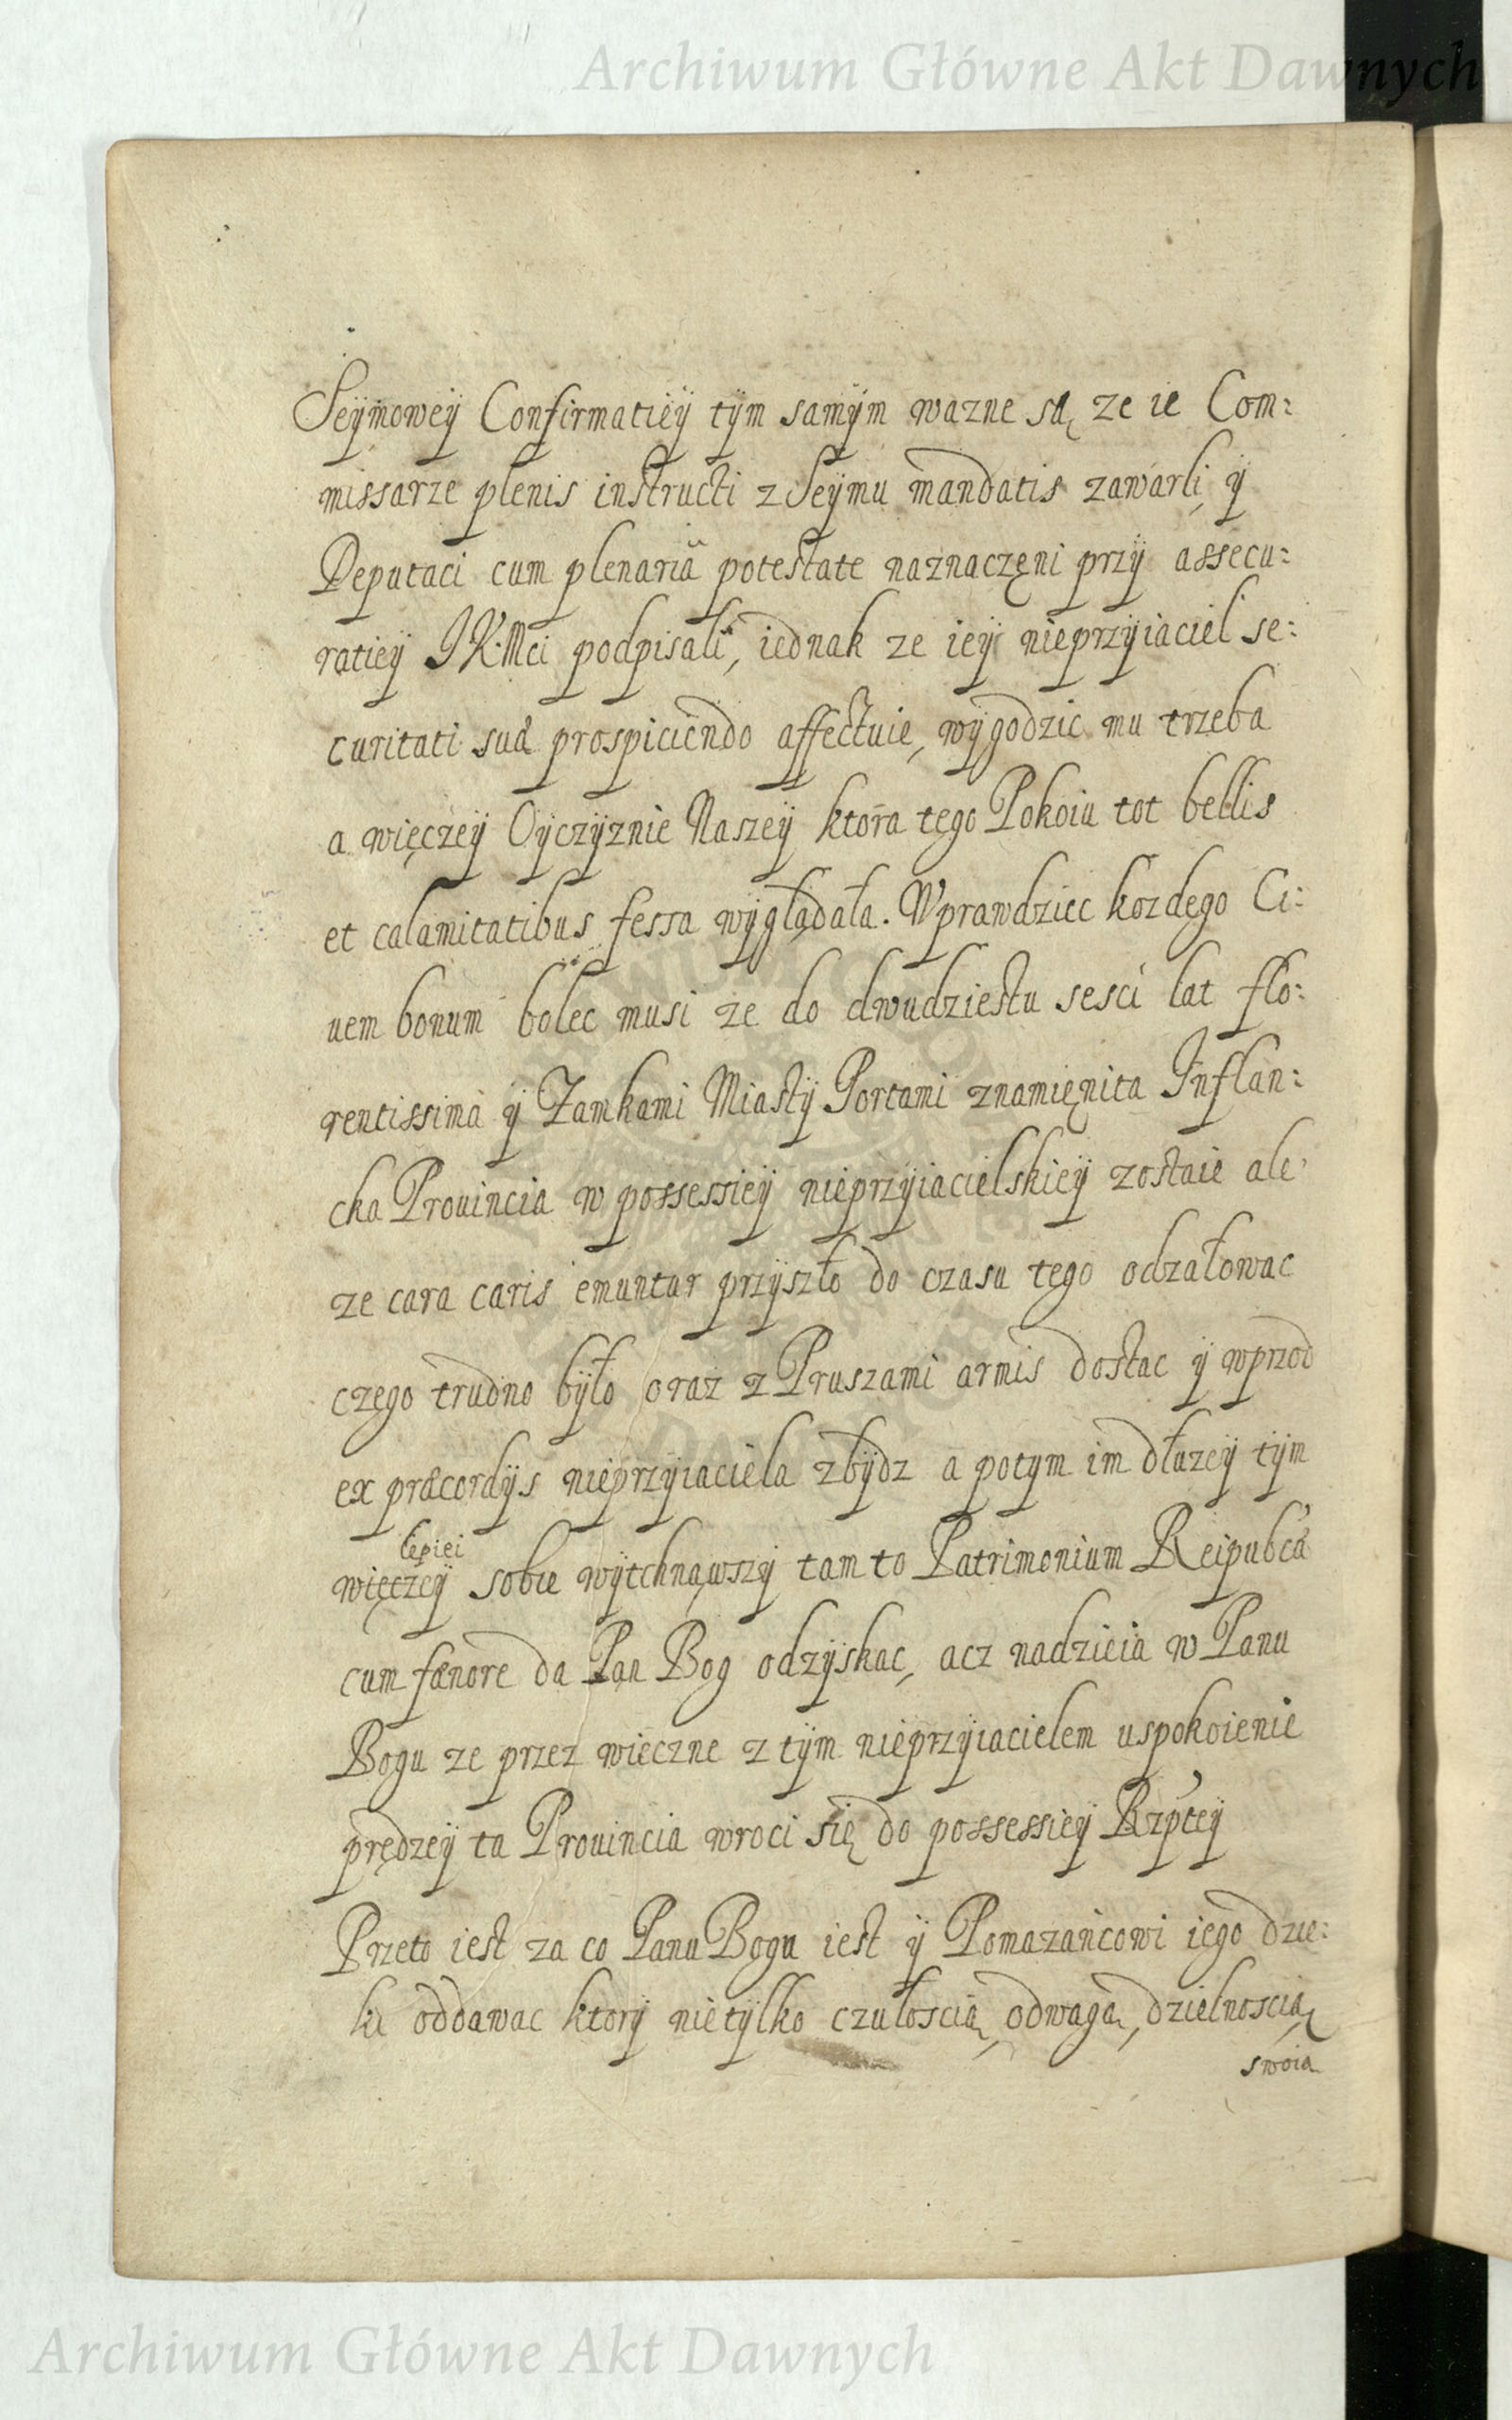 Archiwum Główne Akt Dawnych
Seÿmoweÿ Confirmatieÿ tÿm samÿm wazne są ze ie Com:
missarze plenis instructi z Seÿmu mandatis zawarli, ÿ
Deputaci cum plenariâ potestate naznaczęni przÿ assecu:
ratieÿ JK:Mci podpisali, iednak ze ieÿ nieprzÿiaciel se:
curitati suæ prospiciendo affectuie, wÿgodzic mu trzeba
a więczeÿ Oÿczÿznie Naszeÿ ktora tego Pokoiu tot bellis
et calamitatibus fessa wÿglądała. Wprawdziec kozdego Ci:
uem bonum bolec musi ze do dwudziestu sesci lat flo:
rentissima ÿ Zamkami Miastÿ Portami znamięnita Inflan:
cka Prouincia w possessieÿ nieprzÿiacielskieÿ zostaie ale
ze cara caris emuntur przÿszło do czasu tego odzałowac
czego trudno bÿło oraz z Pruszami armis dostac ÿ wprzod
ex præcordÿs nieprzÿiaciela zbÿdz a potym im dłuzeÿ tÿm
lepiei
więczeÿ sobie wÿtchnąwszÿ tam to Patrimonium Reipubcæ
cum fænore da Pan Bog odzÿskac, acz nadzieia w Panu
Bogu ze przez wieczne z tÿm nieprzÿiacielem uspokoienie
prędzeÿ ta Prouincia wroci się do possessieÿ Rzpteÿ
Przeto iest za co Panu Bogu iest ÿ Pomazańcowi iego dzie:
ki oddawac ktorÿ nietÿlko czułoscią, odwagą, dzielnoscią
swoia
Archiwum Główne Akt Dawnych